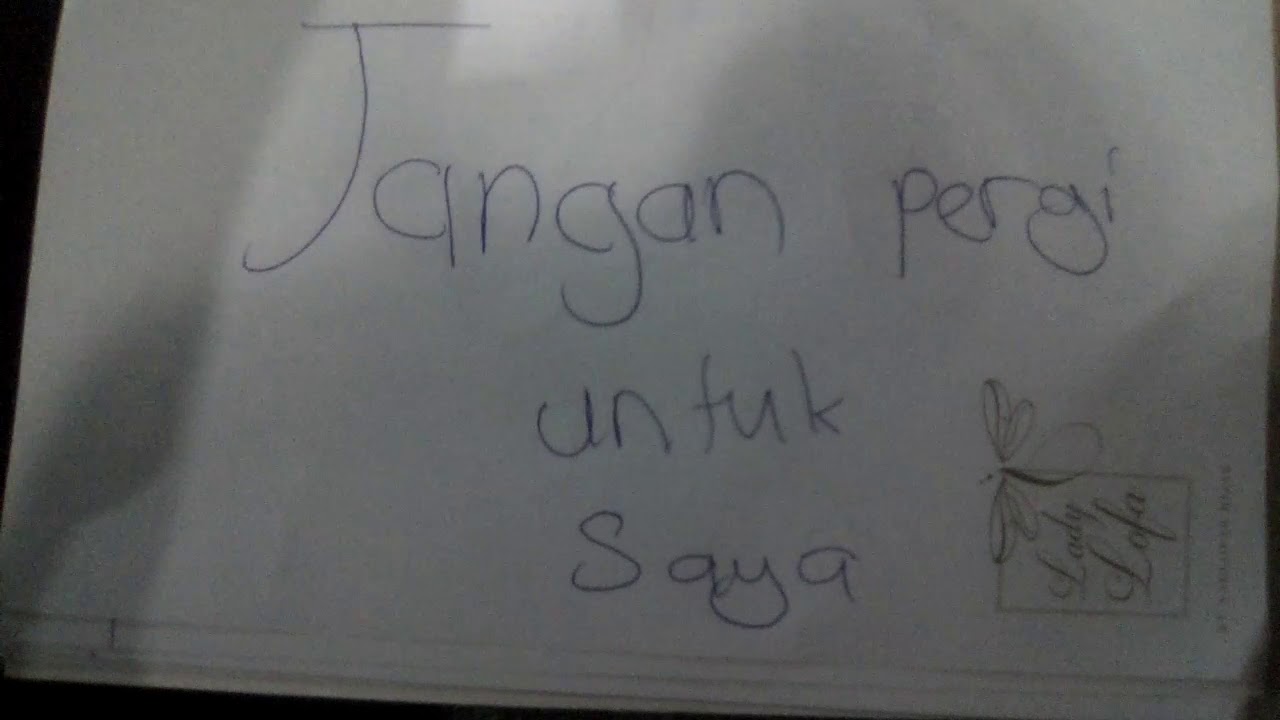 Jangan pergi
untuk
Saya
Lady
Lofa